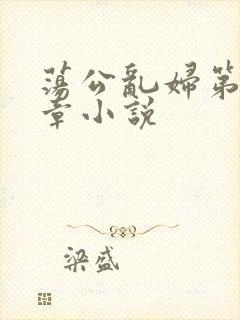 蕩公亂婦第
章小說
梁盛